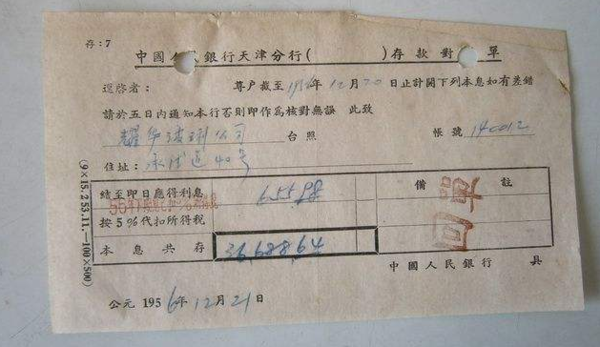 存:7
中國人民銀行天津分行( )存款對 單
逕啓者: 尊户截至1956年12月20日止計開下列本息如有差錯
請於五日内通知本行否則即作爲核對無誤 此致
耀華玻璃公司 台照 帳號 140012
住址: 承德道40号
結至即日應得利息 655.98 備 註
按5%代扣所得税
本息共存 36688.64
中國人民銀行 具
公元 1956年12月21日
(9×15.253.11.—100×500)